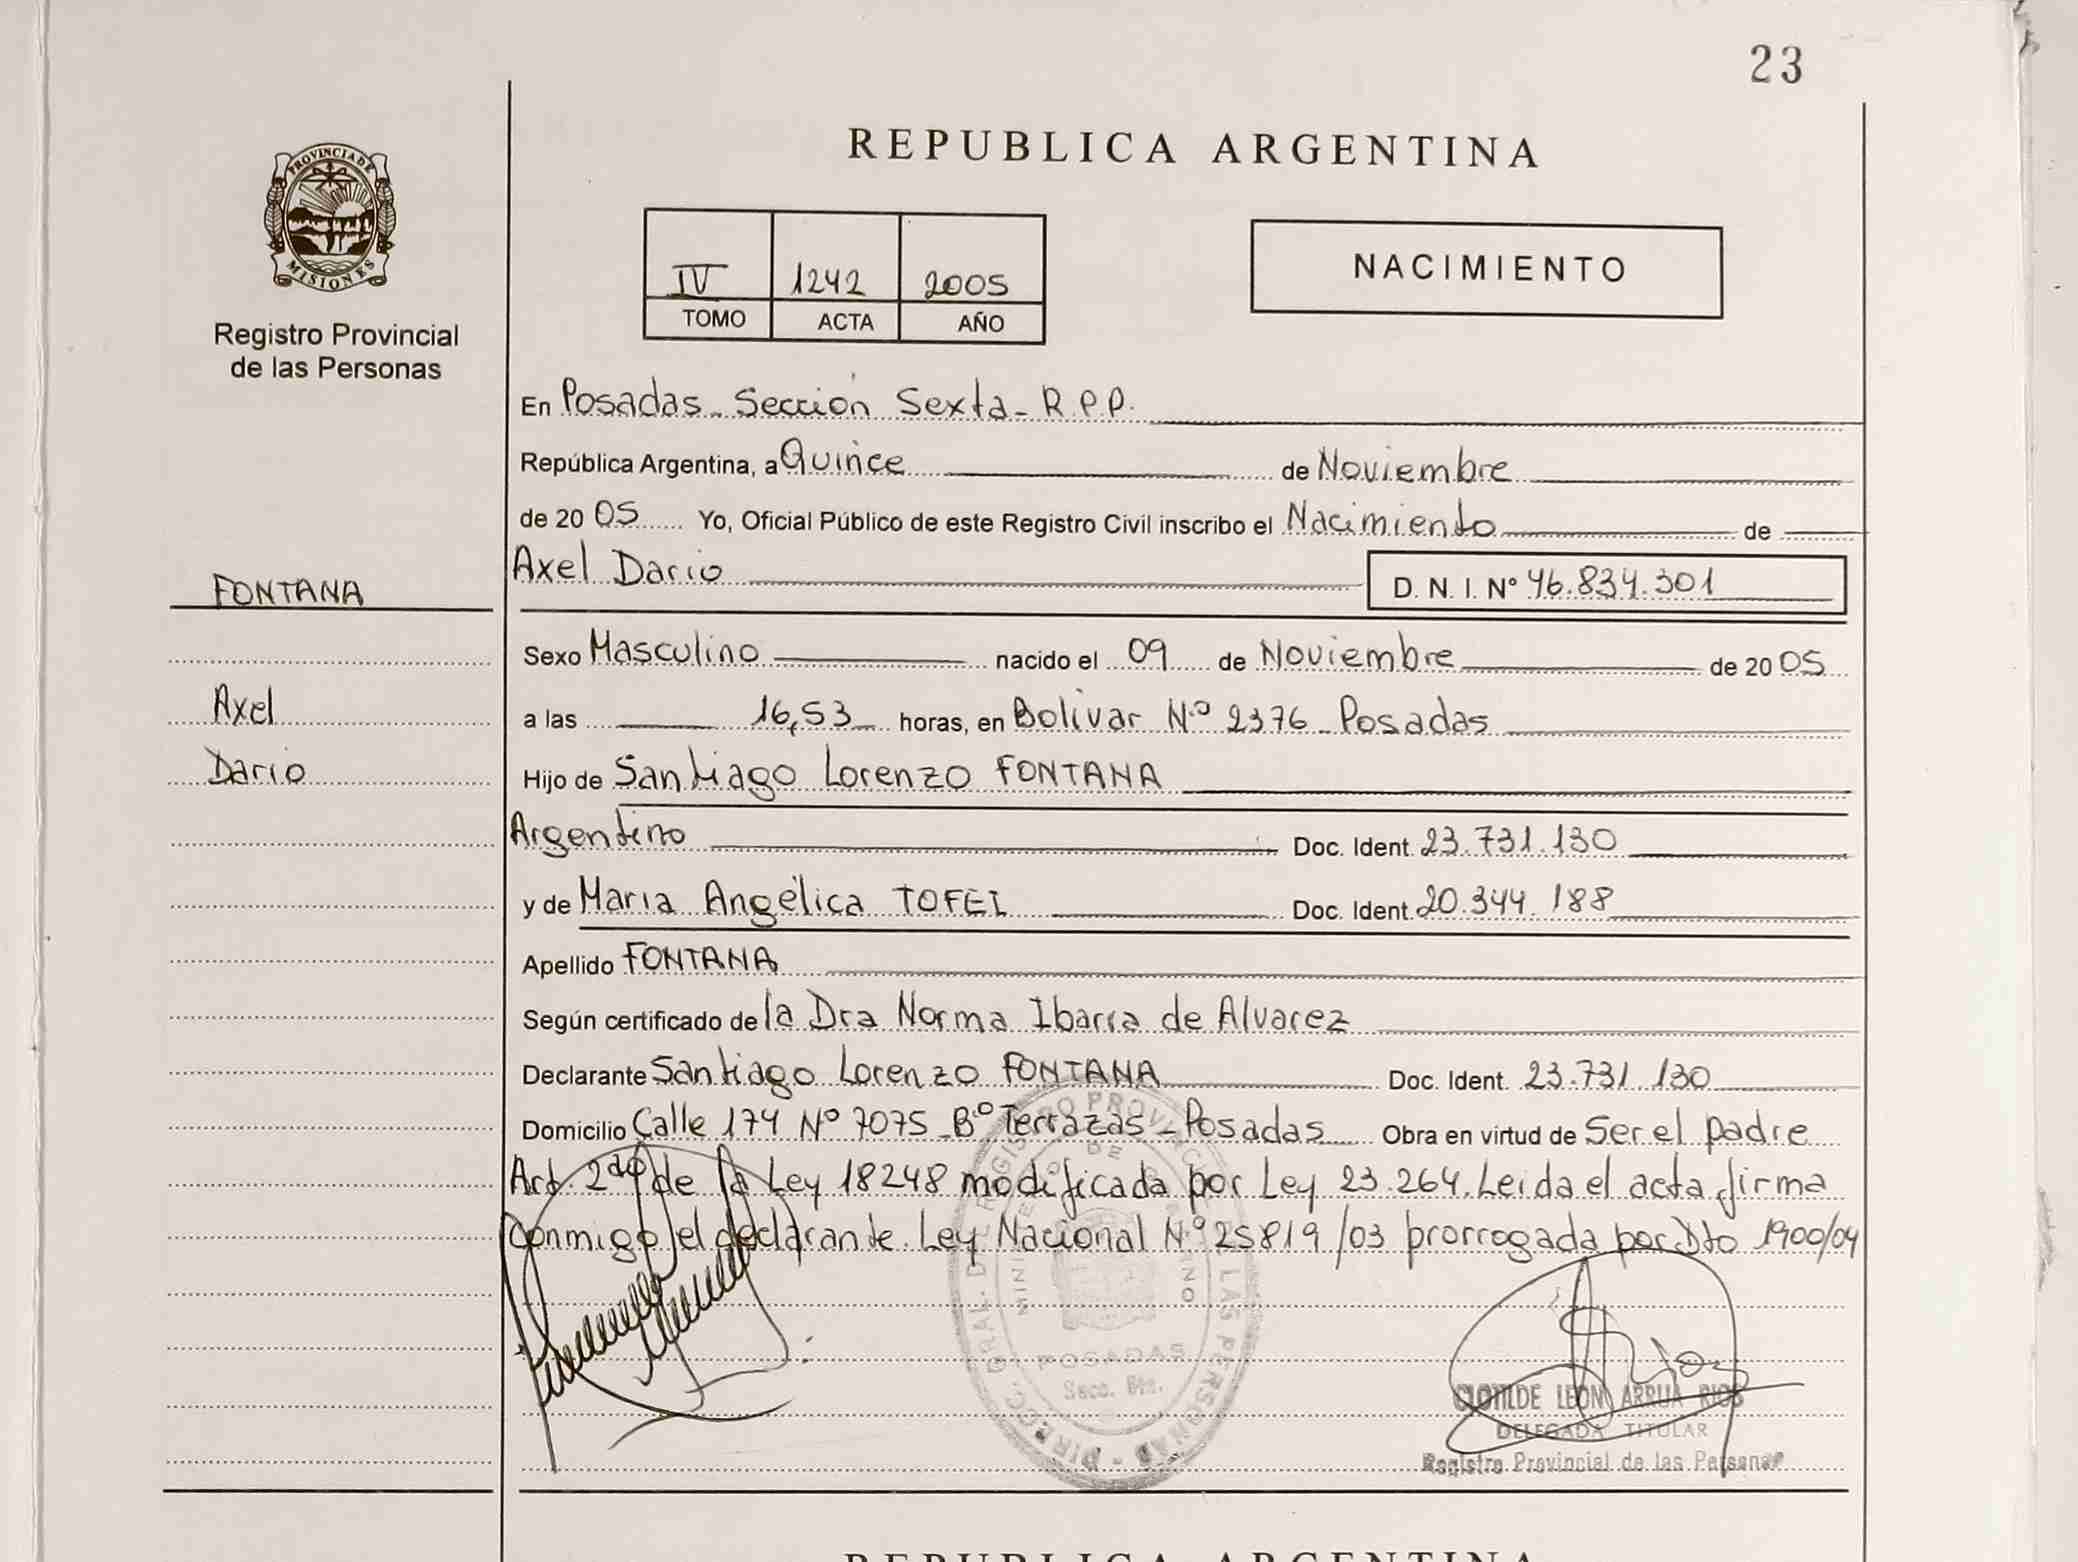 23
REPUBLICA ARGENTINA
PROVINCIA DE
MISIONES
Registro Provincial
de las Personas
IV 1242 2005
TOMO ACTA AÑO
NACIMIENTO
En Posadas - Sección Sexta - R.P.P.
República Argentina, a Quince de Noviembre
de 20 05 Yo, Oficial Público de este Registro Civil inscribo el Nacimiento de
Axel Dario D. N. I. Nº 46.834.301
FONTANA
Sexo Masculino nacido el 09 de Noviembre de 20 05
Axel
a las 16,53 horas, en Bolivar Nº 2376 - Posadas
Dario
Hijo de Santiago Lorenzo FONTANA
Argentino Doc. Ident. 23.731.130
y de Maria Angélica TOFEI Doc. Ident. 20.344.188
Apellido FONTANA
Según certificado de la Dra Norma Ibarra de Alvarez
Declarante Santiago Lorenzo FONTANA Doc. Ident. 23.731.130
Domicilio Calle 174 Nº 7075 - Bº Terrazas - Posadas Obra en virtud de Ser el padre
Art 2do de la Ley 18248 modificada por Ley 23.264. Leida el acta firma
conmigo el declarante. Ley Nacional Nº 25819/03 prorrogada por Dto 1900/04
POSADAS
Secc. 6ta.
CLOTILDE LEON ARRUA RIOS
DELEGADA TITULAR
Registro Provincial de las Personas
REPUBLICA ARGENTINA